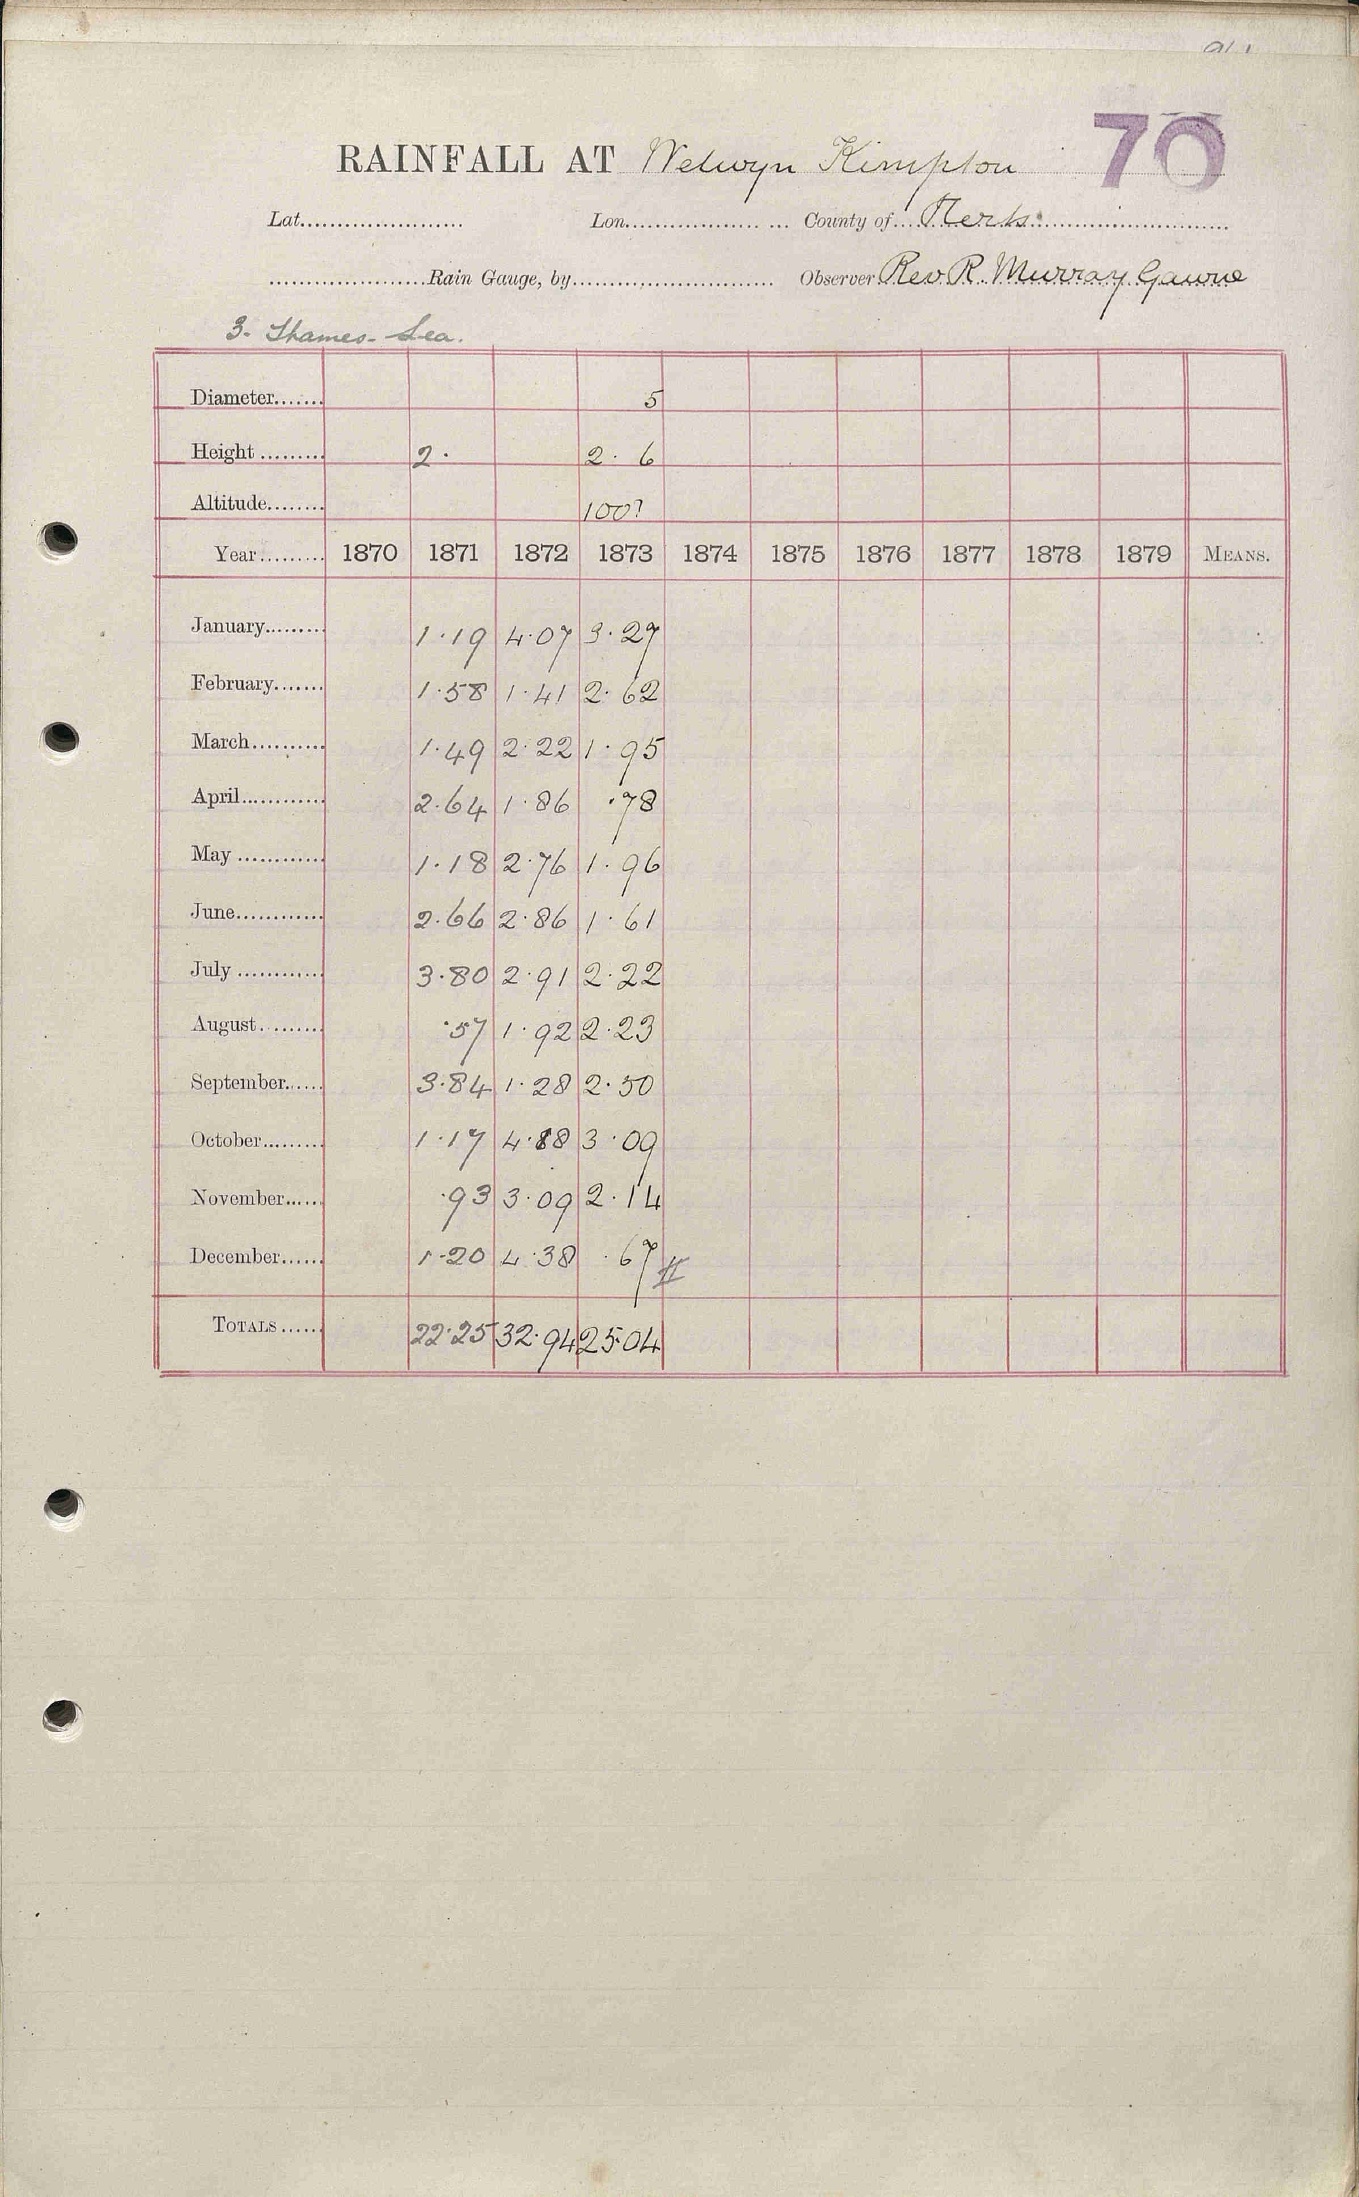 70
RAINFALL AT Welwyn Kimpton
Lat. Lon. County of Herts.
Rain Gauge, by Observer Rev R. Murray Gawne
3. Thames - Lea.
Diameter 5
Height 2· 2·6
Altitude 100?
Year 1870 1871 1872 1873 1874 1875 1876 1877 1878 1879 MEANS.
January 1·19 4·07 3·27
February 1·58 1·41 2·62
March 1·49 2·22 1·95
April 2·64 1·86 ·78
May 1·18 2·76 1·96
June 2·66 2·86 1·61
July 3·80 2·91 2·22
August ·57 1·92 2·23
September 3·84 1·28 2·50
October 1·17 4·18 3·09
November ·93 3·09 2·14
December 1·20 4·38 ·67
TOTALS 22·25 32·94 25·04